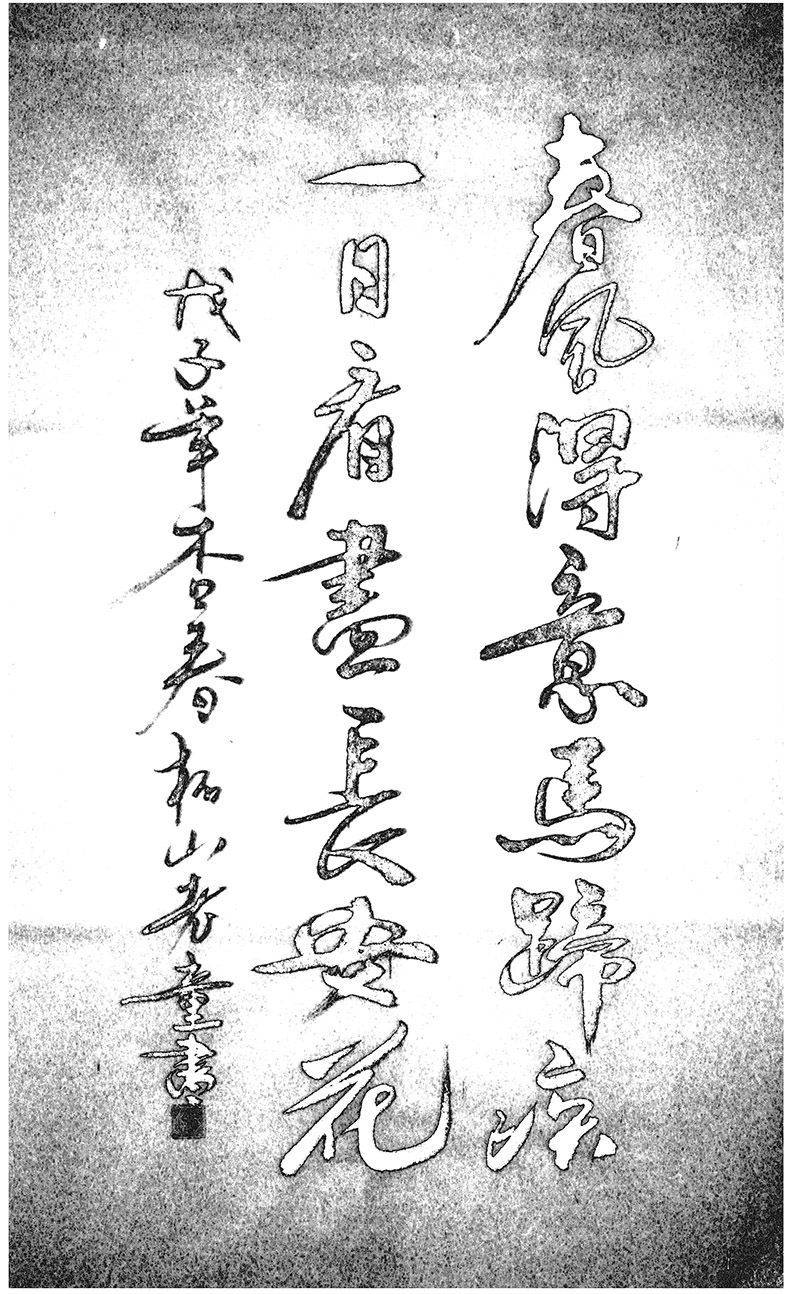 春風得意馬蹄疾
一日看盡長安花
戊子年杏春山老童書